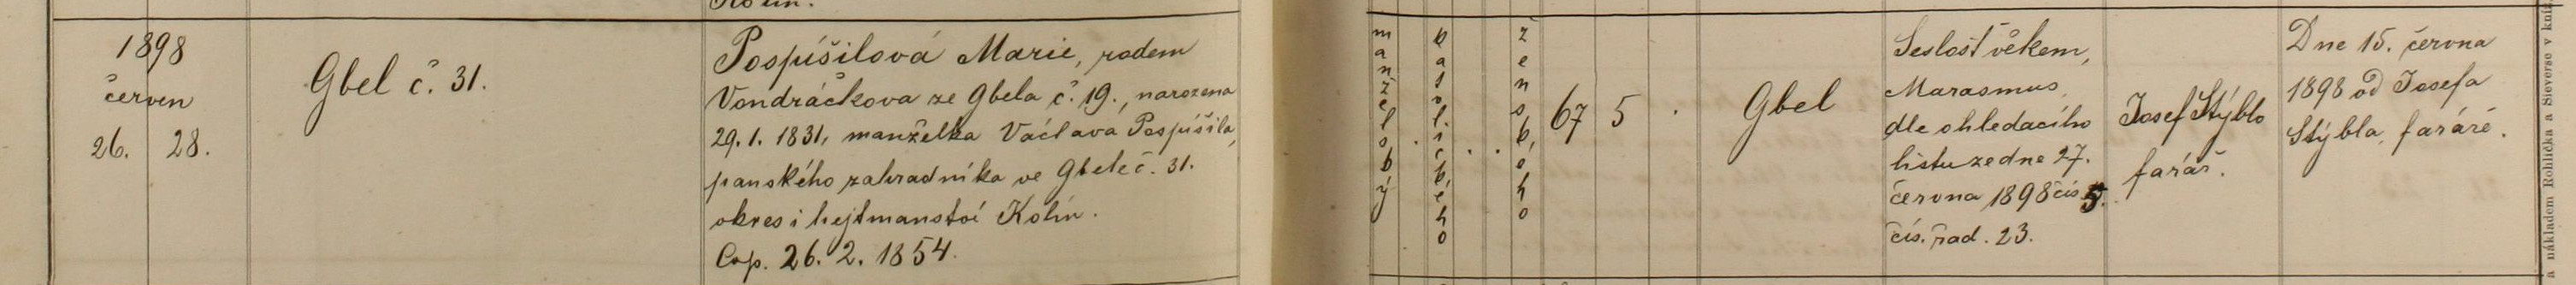 Kolín.
1898
červen
26. 28.
Gbel č. 31.
Pospíšilová Marie, rodem
Vondráčkova ze Gbela č. 19., narozena
29. 1. 1831, manželka Václava Pospíšila,
panského zahradníka ve Gbele č. 31.
okres i hejtmanství Kolín.
Cop. 26. 2. 1854.
manželský
katolického
ženského
67 5 .
Gbel
Sešlost věkem,
Marasmus,
dle ohledacího
listu ze dne 27.
června 1898 čís 5.
čís. řad. 23.
Josef Stýblo
farář.
Dne 15. června
1898 od Josefa
Stýbla, faráře.
a nákladem Rohlíčka a Sieverse v